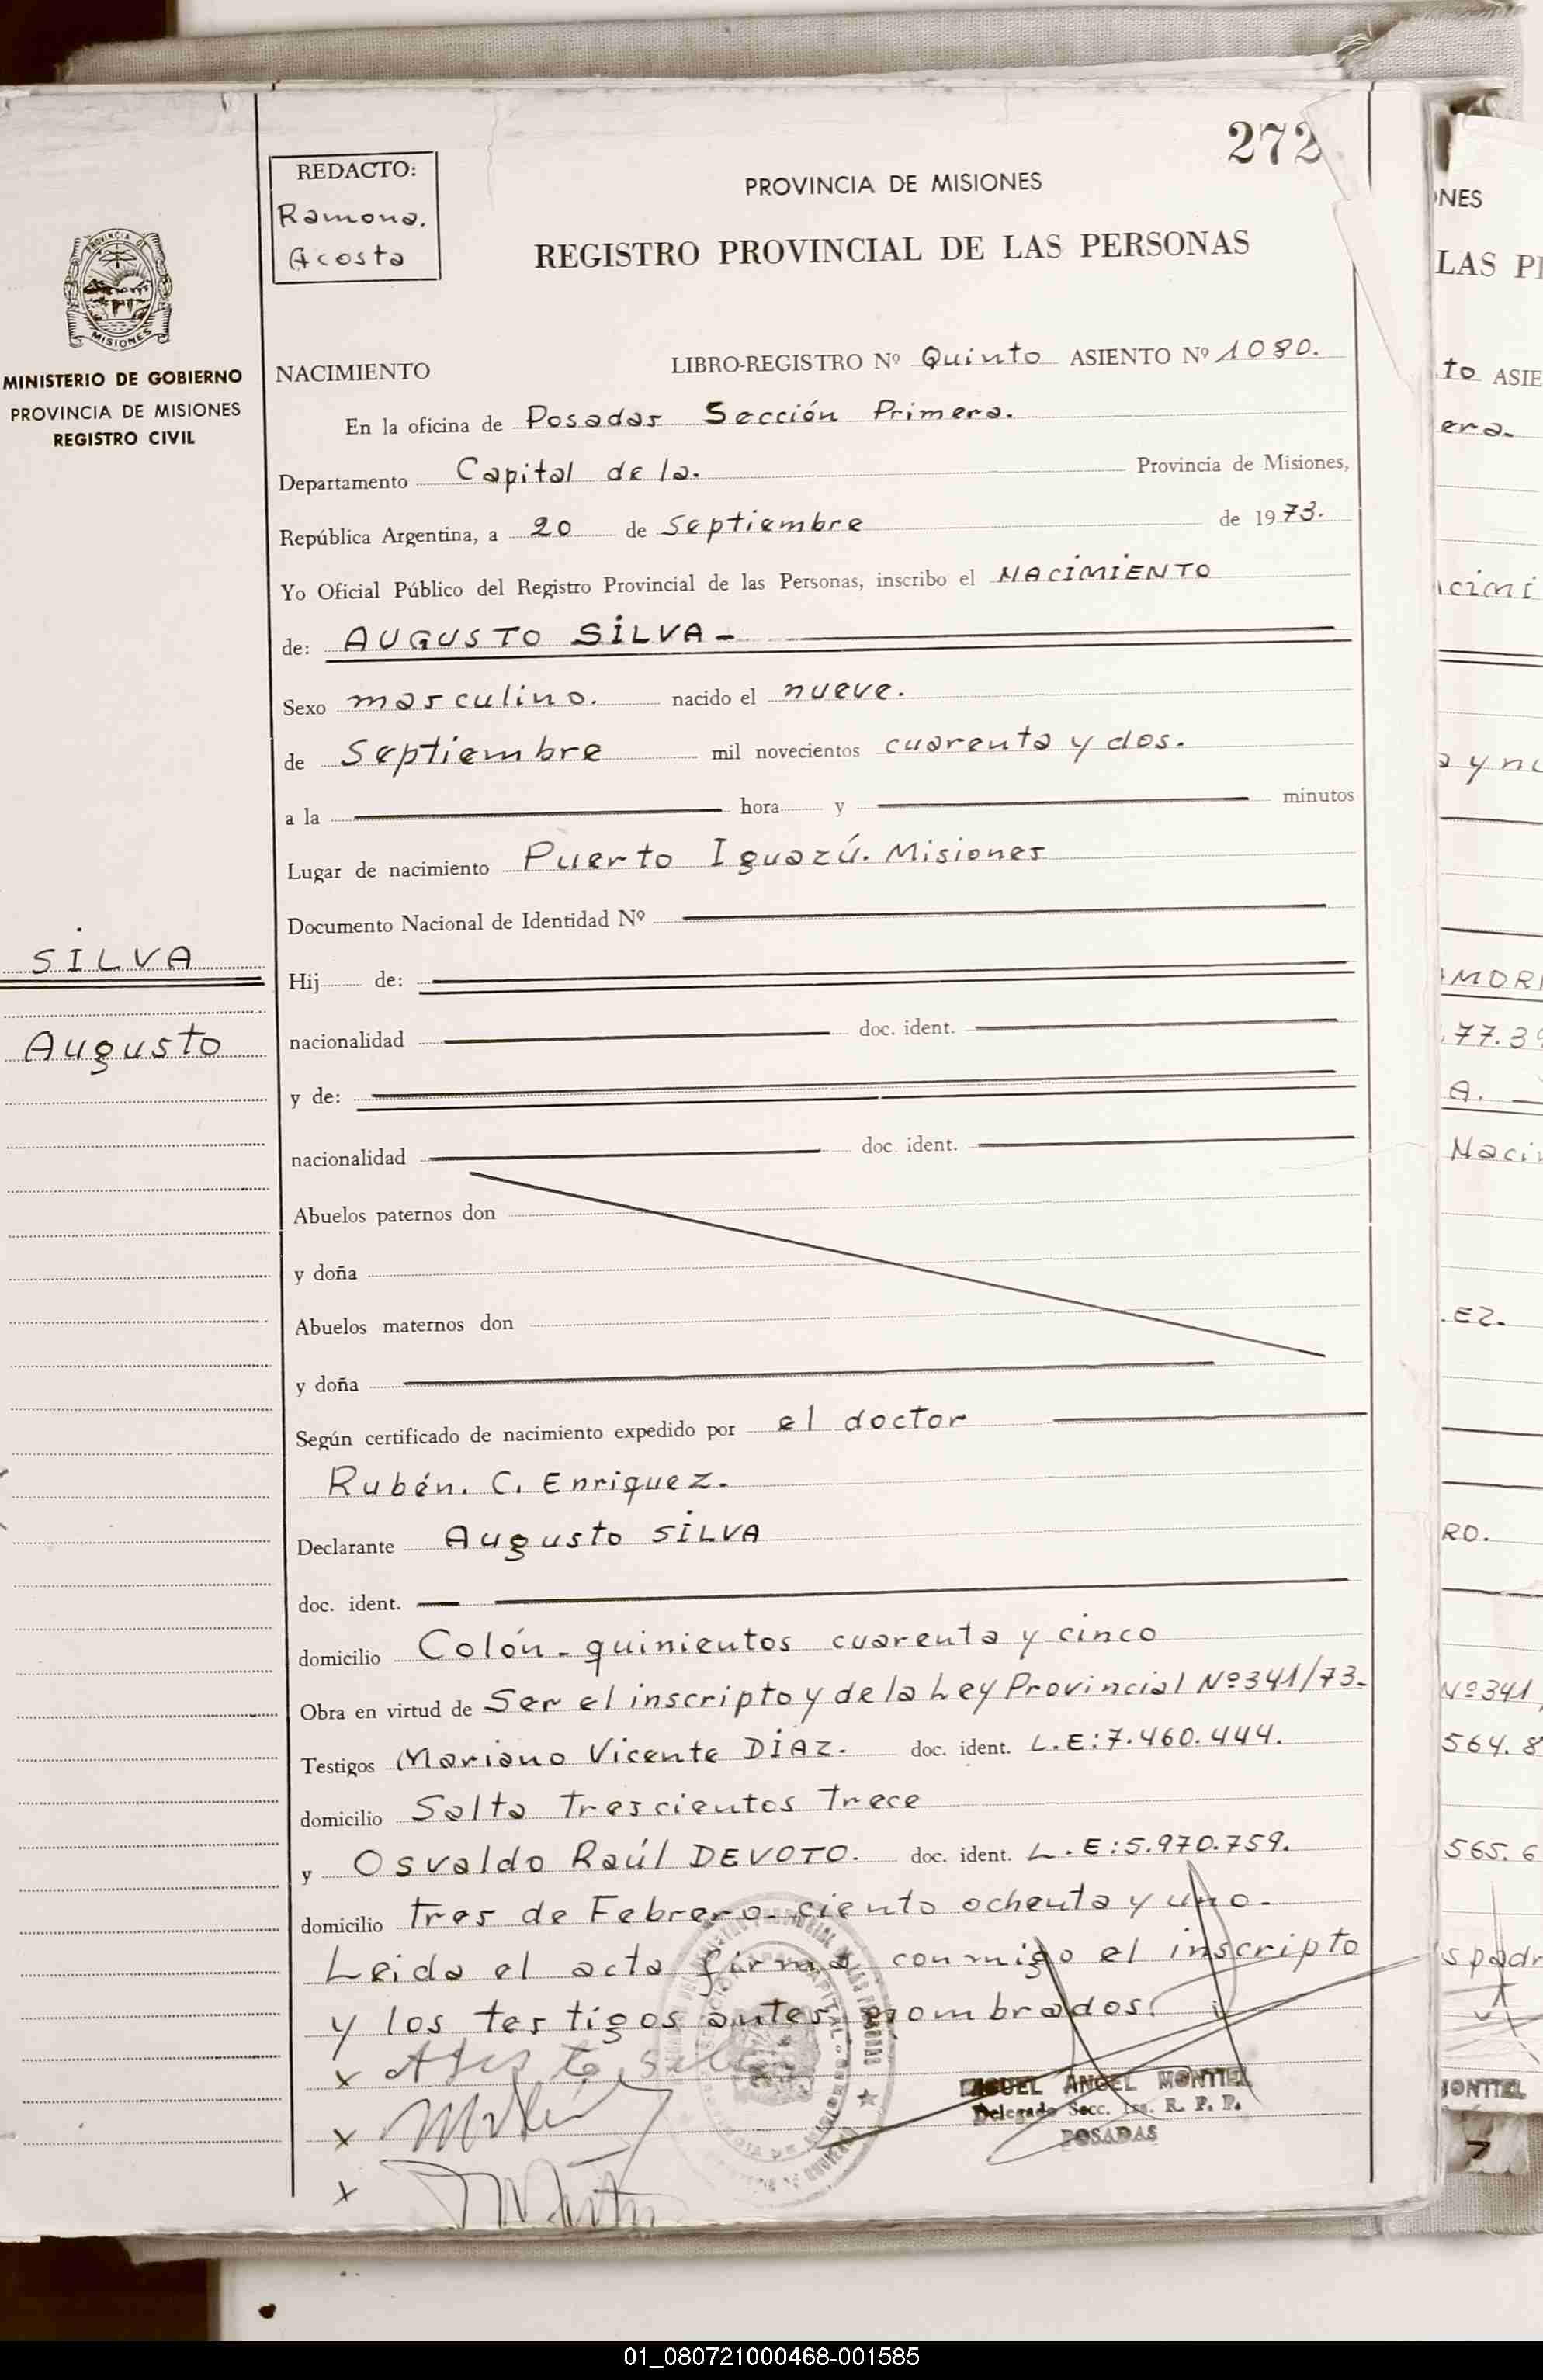 272
REDACTO:
Ramona.
Acosta
PROVINCIA DE MISIONES
REGISTRO PROVINCIAL DE LAS PERSONAS
PROVINCIA DE
MISIONES
MINISTERIO DE GOBIERNO
PROVINCIA DE MISIONES
REGISTRO CIVIL
NACIMIENTO LIBRO-REGISTRO Nº Quinto ASIENTO Nº 1080.
En la oficina de Posadas Sección Primera.
Departamento Capital de la. Provincia de Misiones,
República Argentina, a 20 de Septiembre de 1973.
Yo Oficial Público del Registro Provincial de las Personas, inscribo el NACIMIENTO
de: AUGUSTO SILVA -
Sexo masculino. nacido el nueve.
de Septiembre mil novecientos cuarenta y dos.
a la hora y minutos
Lugar de nacimiento Puerto Iguazú. Misiones
Documento Nacional de Identidad Nº
SILVA
Augusto
Hij de:
nacionalidad doc. ident.
y de:
nacionalidad doc. ident.
Abuelos paternos don
y doña
Abuelos maternos don
y doña
Según certificado de nacimiento expedido por el doctor
Rubén. C. Enriquez.
Declarante Augusto SILVA
doc. ident.
domicilio Colón - quinientos cuarenta y cinco
Obra en virtud de Ser el inscripto y de la Ley Provincial Nº 341/73.
Testigos Mariano Vicente DIAZ. doc. ident. L.E:7.460.444.
domicilio Salta Trescientos Trece
y Osvaldo Raúl DEVOTO. doc. ident. L.E:5.970.759.
domicilio Tres de Febrero - ciento ochenta y uno.
Leida el acta firma conmigo el inscripto
y los testigos antes nombrados.
MIGUEL ANGEL MONTIEL
Delegado Secc. R. P. P.
POSADAS
NES
LAS PE
to ASIE
era.
cimi
a y nu
AMORI
.77.39
A.
Naci
.EZ.
RO.
Nº 341
564.8
565.6
s padr
MONTIEL
01_080721000468-001585